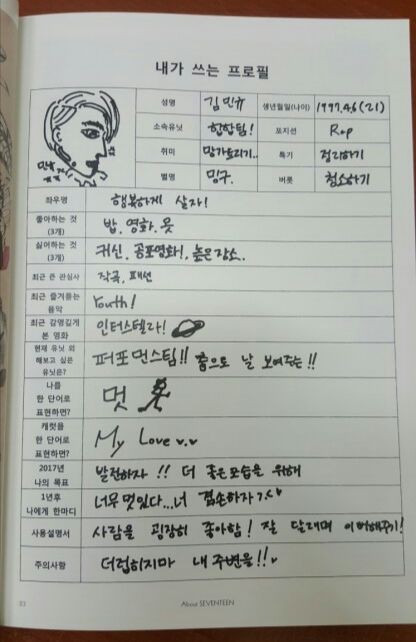 내가 쓰는 프로필
성명 김민규 생년월일(나이) 1997.4.6 (21)
소속유닛 힙합팀! 포지션 Rap
취미 망가뜨리기.. 특기 정리하기
별명 밍구. 버릇 청소하기
민규
좌우명 행복하게 살자!
좋아하는 것
(3개)
밥, 영화, 옷
싫어하는 것
(3개)
귀신, 공포영화!, 높은장소.
최근 큰 관심사 작곡, 패션
최근 즐겨듣는
음악
Youth!
최근 감명깊게
본 영화
인터스텔라!
현재 유닛 외
해보고 싶은
유닛은?
퍼포먼스팀!! 춤으로 날 보여주는!!
나를
한 단어로
표현하면?
멋
캐럿을
한 단어로
표현하면?
My Love v.v
2017년
나의 목표
발전하자 !! 더 좋은모습을 위해
1년후
나에게 한마디
너무멋있다...너 겸손하자
사용설명서 사람을 굉장히 좋아함! 잘 달래며 이뻐해주기!
주의사항 더럽히지마 내 주변을!!
About SEVENTEEN